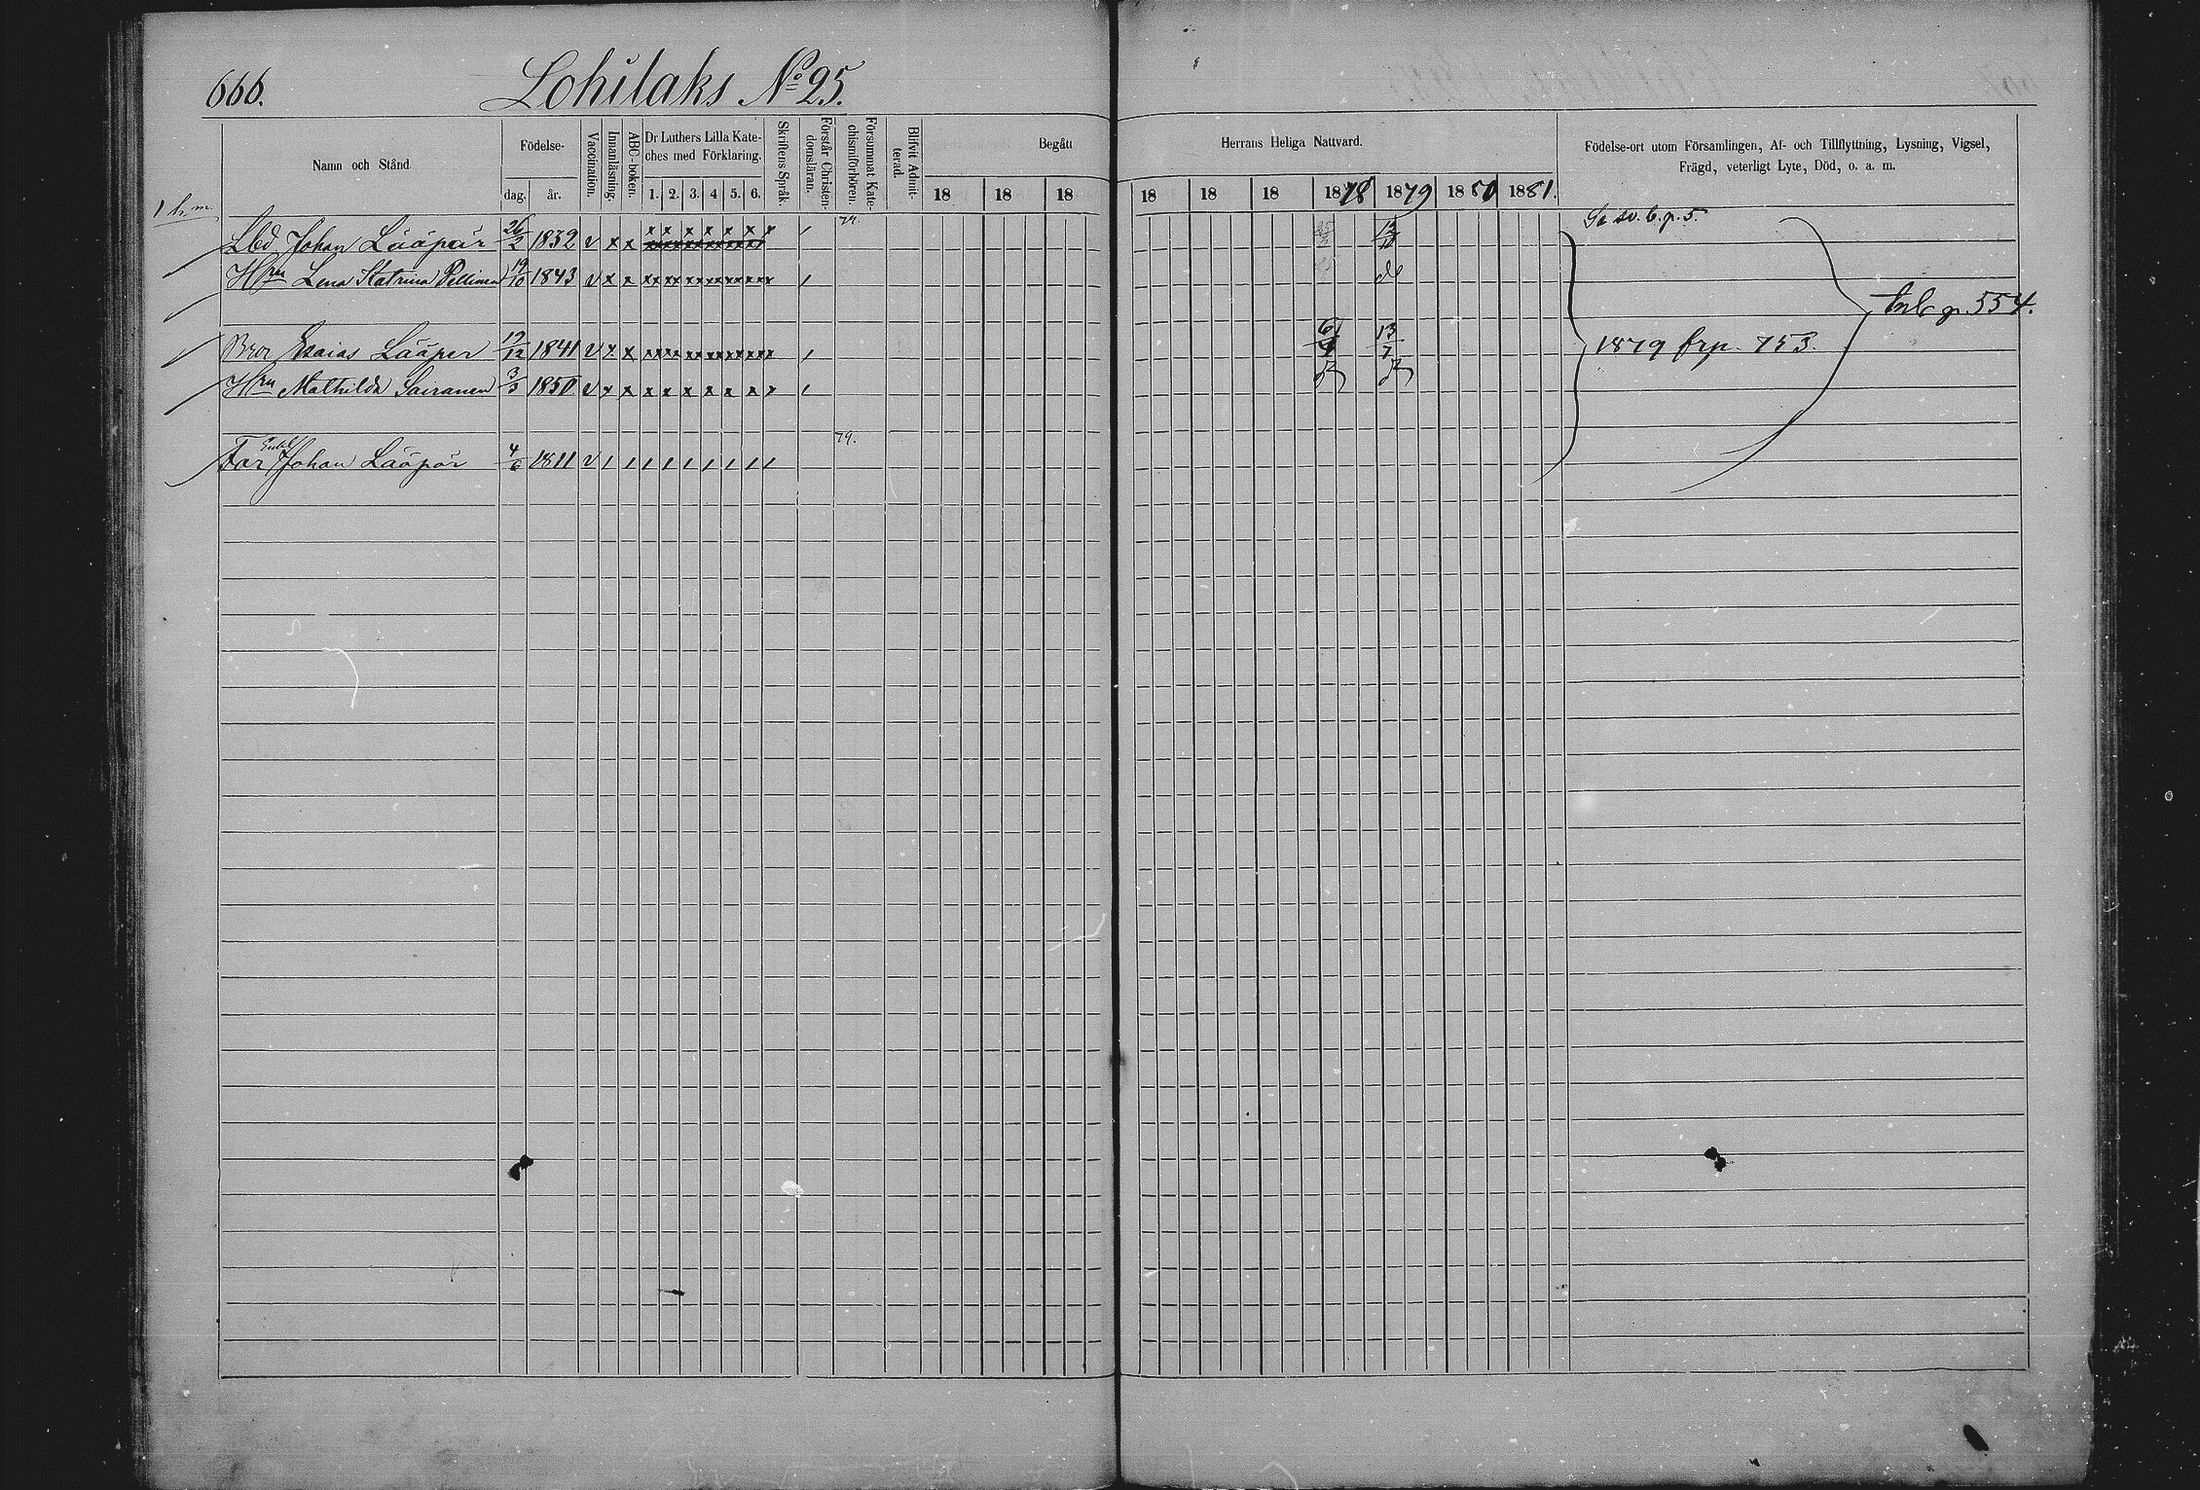 666. Lohilaks No 25.
Namn och Stånd.
Födelse-
dag. år.
Vaccination.
Innanläsning.
ABC-boken.
Dr Luthers Lilla Kate-
ches med Förklaring.
1. 2. 3. 4 5. 6.
Skriftens Språk.
Förstår Christen-
domsläran.
Försummat Kate-
chismiförhören.
Blifvit Admit-
terad.
Begått
18 18 18
Herrans Heliga Nattvard.
18 18 18 1878 1879 1880 1881.
Födelse-ort utom Församlingen, Af- och Tillflyttning, Lysning, Vigsel,
Frägd, veterligt Lyte, Död, o. a. m.
Lbd Johan Lääpär 26/2 1832 v x x 79.
Hru Lena Katrina Pellinen 19/10 1843 v x x
Bror Esaias Lääper 19/12 1841 v x x 13/7
Hru Mathilda Sairanen 3/3 1850 v x x
1879 frp. 753.
p. 554.
Far Johan Lääpär 4/6 1811 v 79.